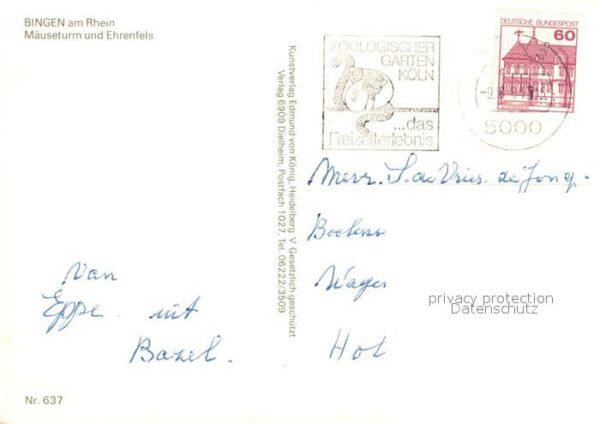 BINGEN am Rhein
Mäuseturm und Ehrenfels
ZOOLOGISCHER
GARTEN
KÖLN
...das
Freizeiterlebnis
DEUTSCHE BUNDESPOST
60
5000
Kunstverlag Edmund von König, Heidelberg V Gesetzlich geschützt
Verlag 6909 Dielheim, Postfach 1027, Tel. 06222/3509
Mevr. S. de Vries. de Jong.
Hol
privacy protection
Datenschutz
Van
Eppe uit
Bazel.
Nr. 637